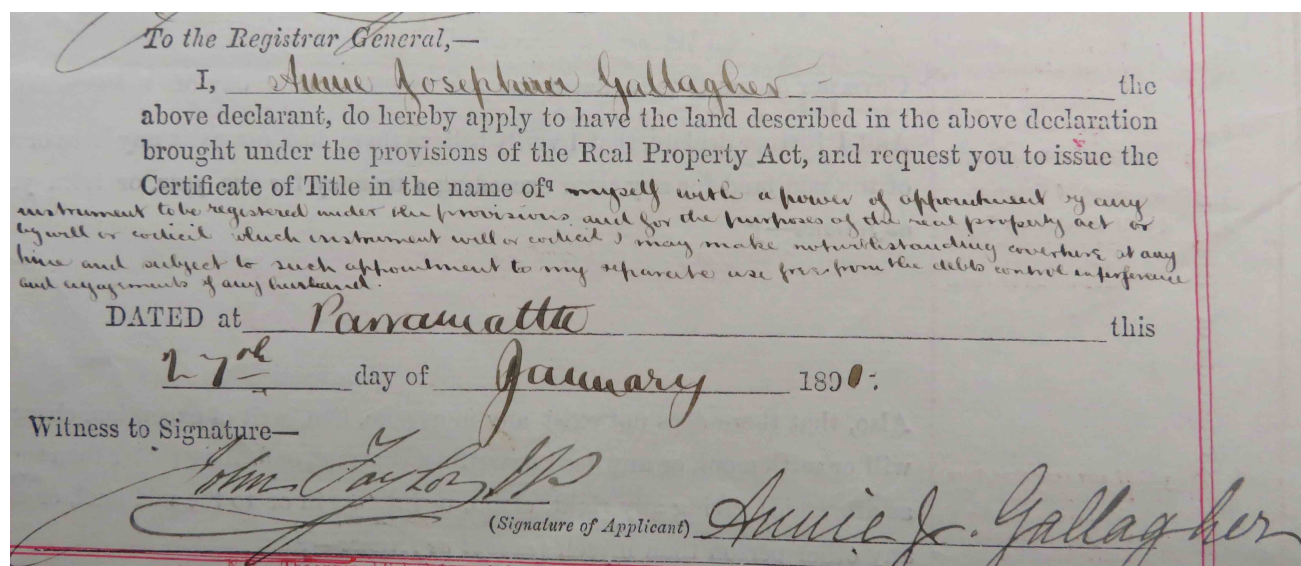 To the Registrar General,—
I, Annie Josephine Gallagher the
above declarant, do hereby apply to have the land described in the above declaration
brought under the provisions of the Real Property Act, and request you to issue the
Certificate of Title in the name of q myself with a power of appointment by any
instrument to be registered under the provisions and for the purposes of the real property act or
by will or codicil which instrument will or codicil I may make notwithstanding coverture at any
time and subject to such appointment to my separate use free from the debts control interference
and engagements of any husband.
DATED at Parramatta this
27th day of January 1890:
Witness to Signature—
John Taylor JP
(Signature of Applicant) Annie J. Gallagher